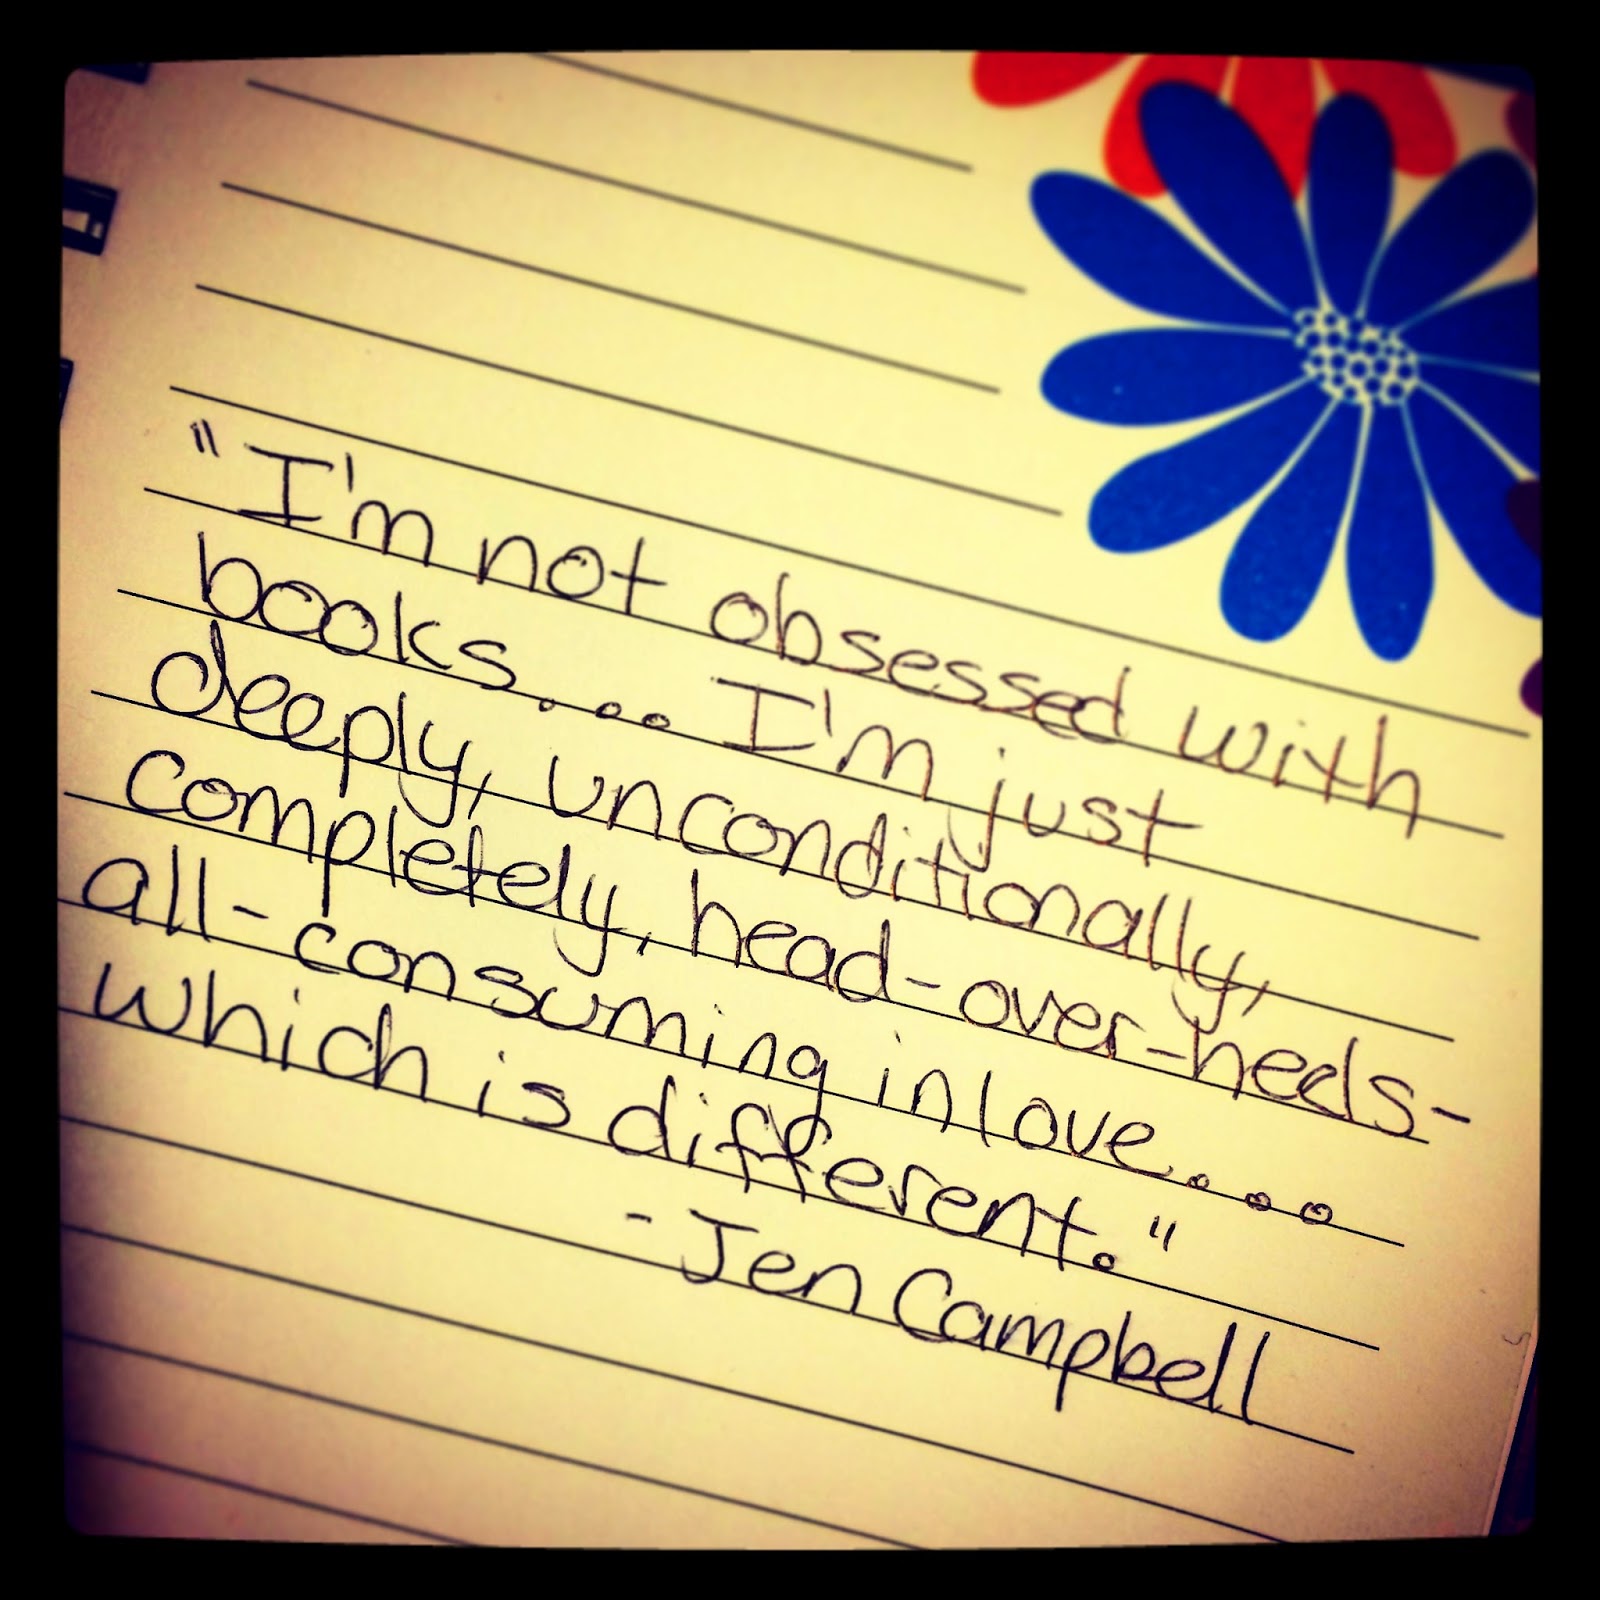 "I'm not obsessed with
books... I'm just
deeply, unconditionally,
completely, head-over-heels-
all-consuming in love...
which is different."
-Jen Campbell